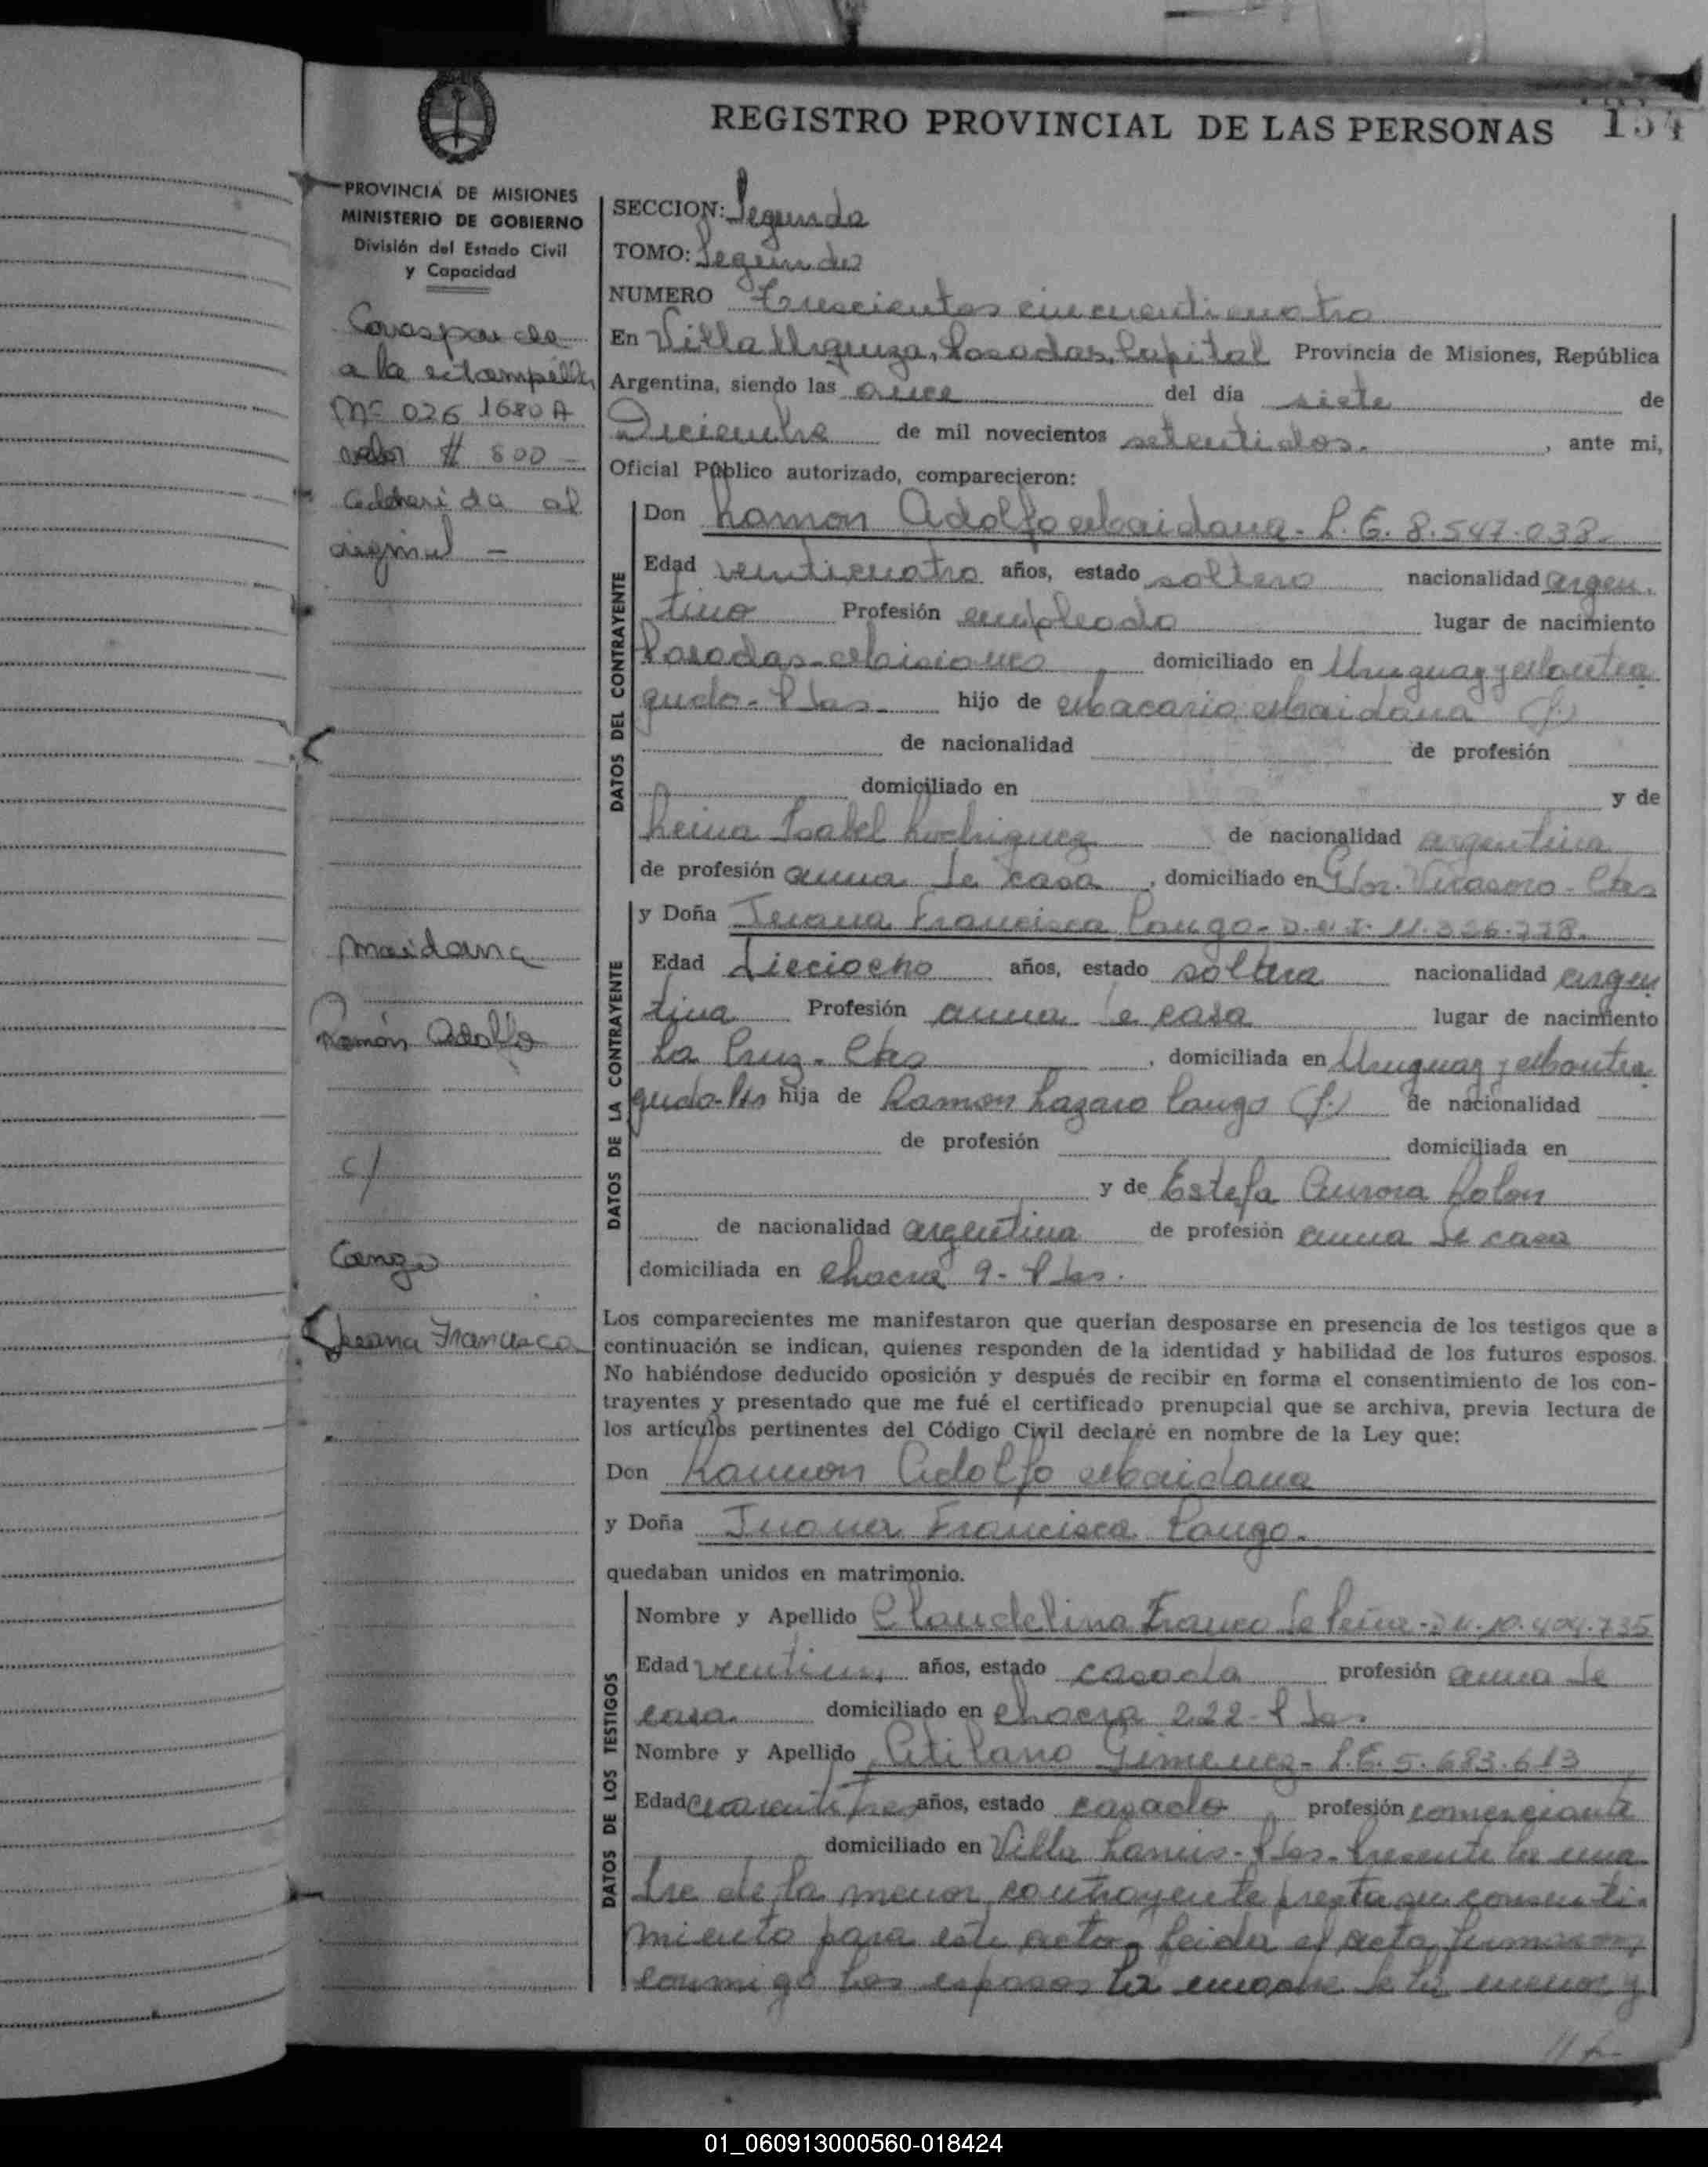 REGISTRO PROVINCIAL DE LAS PERSONAS 154
PROVINCIA DE MISIONES
MINISTERIO DE GOBIERNO
División del Estado Civil
y Capacidad
Corresponde
a la estampilla
Nº 026 1680 A
valor $ 800 -
adherida al
original -
Maidana
Ramón Adolfo
c/
Cango
Juana Francisca
SECCION: Segunda
TOMO: Segundo
NUMERO Trescientos cincuenticuatro
En Villa Urquiza, Posadas, Capital Provincia de Misiones, República
Argentina, siendo las once del día siete de
Diciembre de mil novecientos setentidos. , ante mi,
Oficial Público autorizado, comparecieron:
DATOS DEL CONTRAYENTE
Don Ramon Adolfo Maidana - L. E. 8.547.038.
Edad venticuatro años, estado soltero nacionalidad argen
tino Profesión empleado lugar de nacimiento
Posadas-Misiones , domiciliado en Uruguay y Montea
gudo - Pdas. hijo de Macario Maidana (f.)
de nacionalidad de profesión
domiciliado en y de
Reina Isabel Rodriguez de nacionalidad argentina
de profesión ama de casa , domiciliado en Gdor. Virasoro - Ctes
DATOS DE LA CONTRAYENTE
y Doña Juana Francisca Cango - D.N.I. 11.326.778.
Edad dieciocho años, estado soltera nacionalidad argen
tina Profesión ama de casa lugar de nacimiento
La Cruz - Ctes , domiciliada en Uruguay y Montea
gudo-Pds hija de Ramon Lazaro Cango (f.) de nacionalidad
de profesión domiciliada en
y de Estefa Aurora Rolon
de nacionalidad argentina de profesión ama de casa
domiciliada en Chacra 9 - Pdas.
Los comparecientes me manifestaron que querían desposarse en presencia de los testigos que a
continuación se indican, quienes responden de la identidad y habilidad de los futuros esposos.
No habiéndose deducido oposición y después de recibir en forma el consentimiento de los con-
trayentes y presentado que me fué el certificado prenupcial que se archiva, previa lectura de
los artículos pertinentes del Código Civil declaré en nombre de la Ley que:
Don Ramon Adolfo Maidana
y Doña Juana Francisca Cango.
quedaban unidos en matrimonio.
DATOS DE LOS TESTIGOS
Nombre y Apellido Claudelina Franco de - 10.404.735
Edad ventiun años, estado casada profesión ama de
casa domiciliado en Chacra 222 - Pdas.
Nombre y Apellido Atilano Gimenez - L.E. 5.683.613
Edad cuarentitres años, estado casado , profesión comerciante
domiciliado en Villa Lanus - Pdas - Presente la ma
dre de la menor contrayente presta su consenti-
miento para este acto - Leida el acta, firmaron
conmigo los esposos la madre de la menor y
01_060913000560-018424